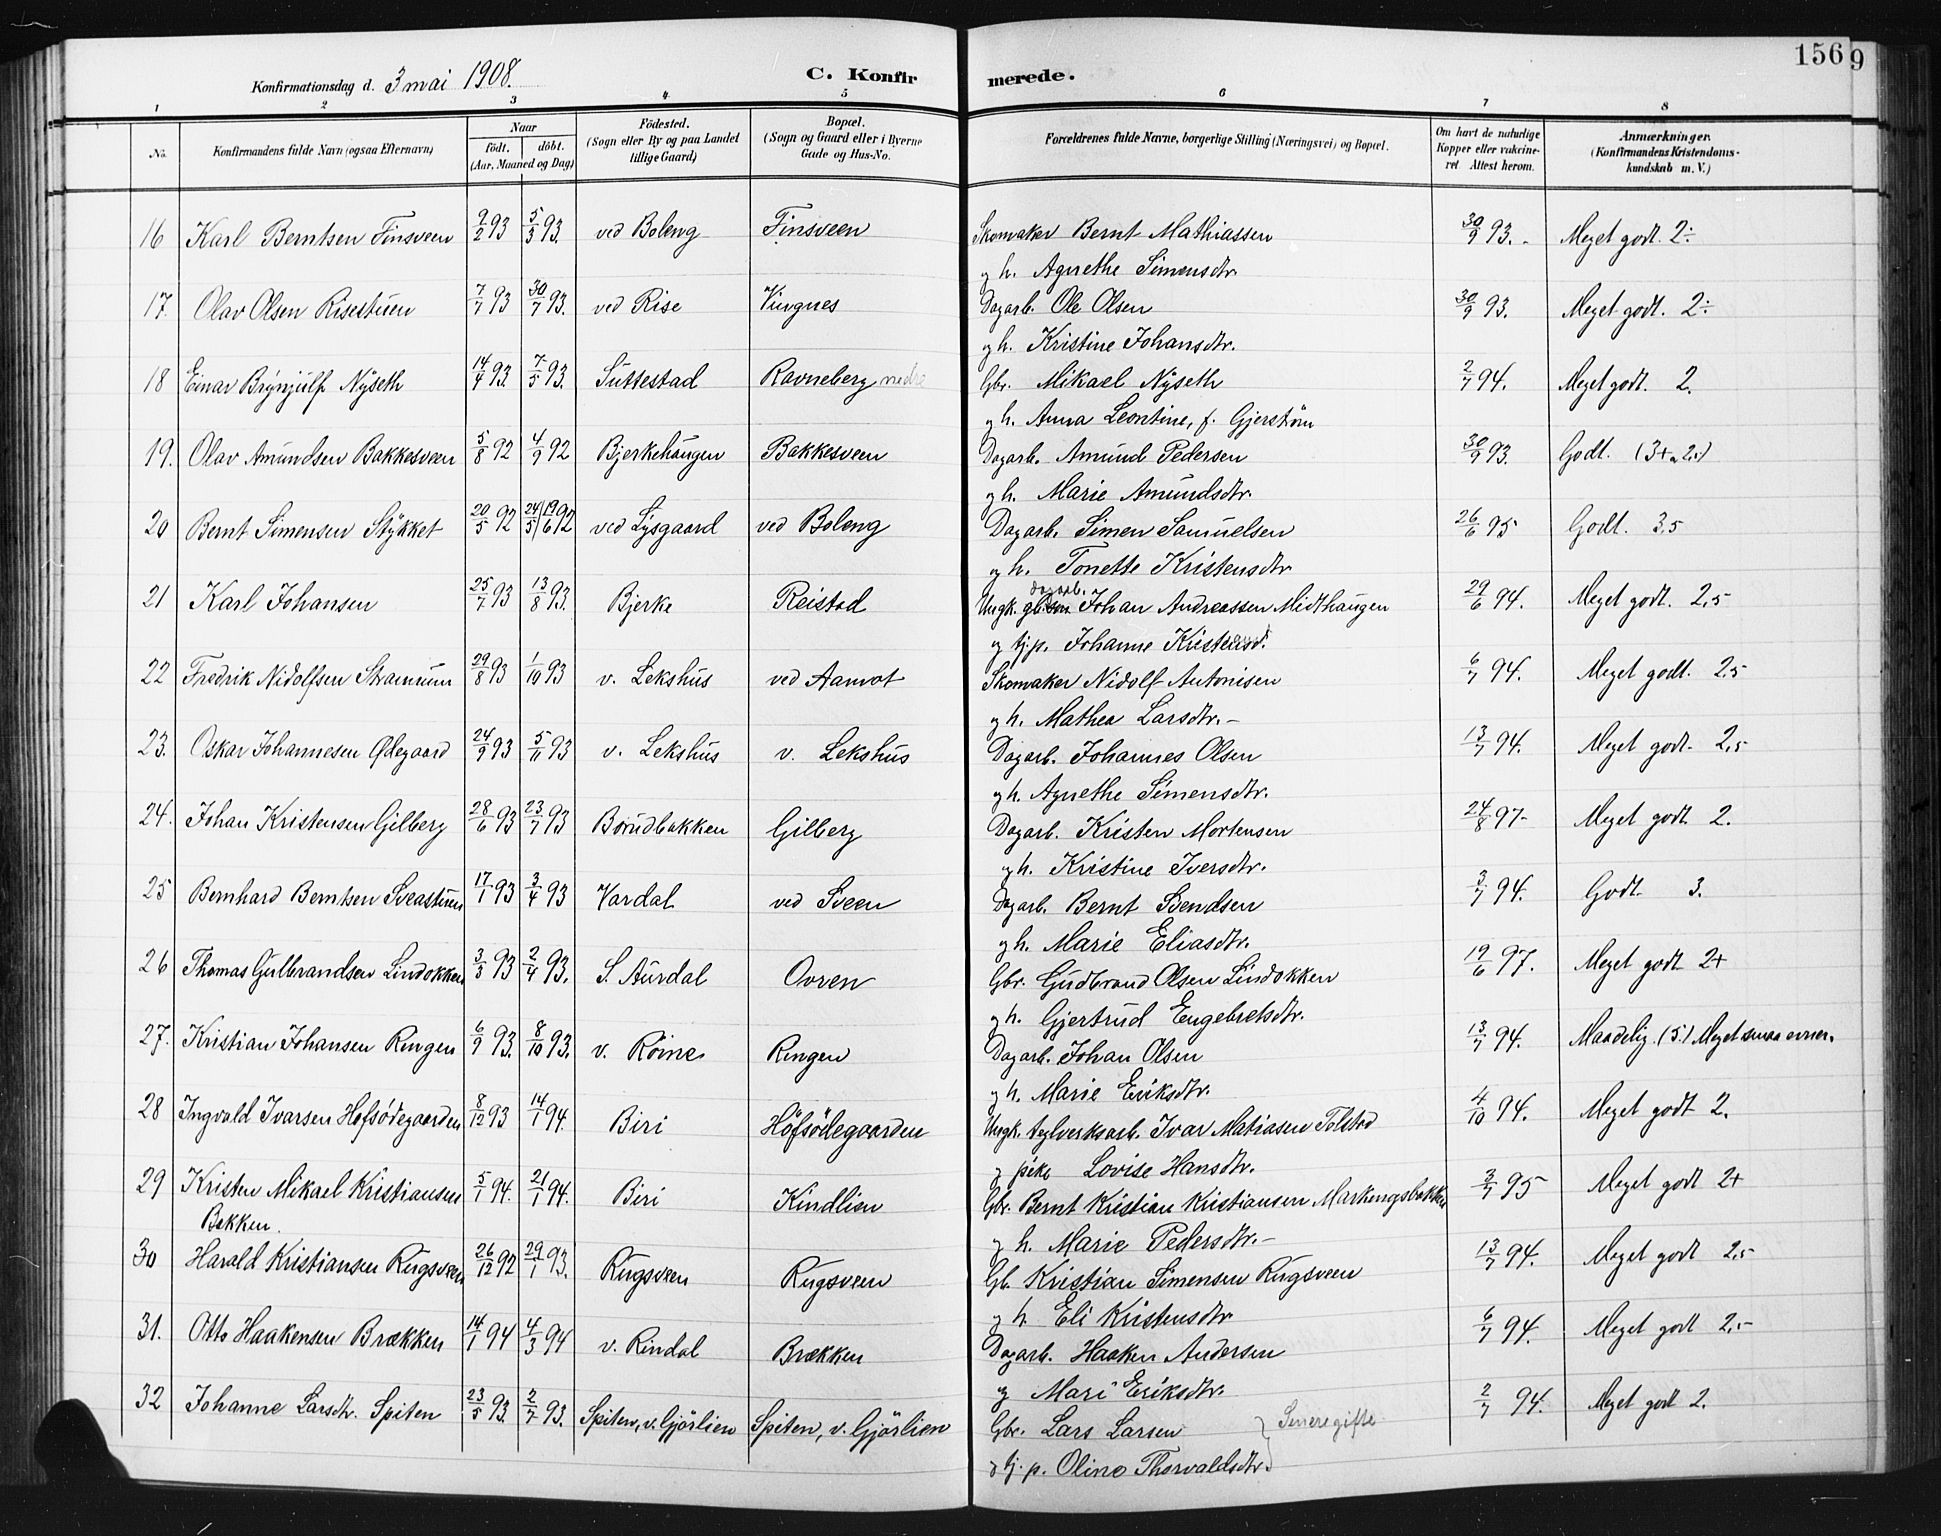 156 9
Konfirmationsdag d. 3 mai 1908.
C. Konfirmerede.
1 2 3 4 5 6 7 8
No. Konfirmandens fulde Navn (ogsaa Efternavn) Naar födt. döbt. (Aar, Maaned og Dag) Födested. (Sogn eller By og paa Landet tillige Gaard) Bopæl. (Sogn og Gaard eller i Byerne Gade og Hus-No. Forældrenes fulde Navne, borgerlige Stilling (Næringsvei) og Bopæl. Om havt de naturlige Kopper eller vakcineret Attest herom. Anmærkninger. (Konfirmandens Kristendomskundskab m. V.)
16 Karl Berntsen Finsveen 9/2 93 5/3 93. ved Boleng Finsveen Skomaker Bernt Mathiassen 30/9 93. - Meget godt. 2÷
og h. Agnethe Simensdtr.
17. Olav Olsen Risestuen 7/7 93 30/7 93. ved Rise Vingnes Dagarb. Ole Olsen 30/9 93. Meget godt. 2÷
og h. Kristine Johansdtr.
18 Einar Brynjulf Nyseth 14/4 93 7/5 93. Suttestad Ravneberg nedre Gbr. Mikael Nyseth 2/7 94. Meget godt. 2.
og h. Anna Leontine, f. Gjerström
19. Olav Amundsen Bakkesveen 5/8 92 4/9 92 Bjerkehaugen Bakkesveen Dagarb. Amund Pedersen 30/9 93. Godt. (3+ 2,5)
og h. Marie Amundsdtr.
20 Bernt Simensen Stykket 20/5 92 24/5 19/6 92 ved Lysgaard ved Boleng Dagarb. Simen Samuelsen 26/6 95 Godt. 3.5
og h. Tonette Kristensdtr
21 Karl Johansen 25/7 93 13/8 93. Bjerke Reistad Ungk. dagarb. Johan Andreassen Midthaugen 29/6 94. Meget godt. 2,5
og tj.p. Johanne Kristensd.
22 Fredrik Nidolfsen Stramrum 29/8 93 1/10 93 v. Lekshus ved Aamot Skomaker Nidolf Antonisen 6/7 94. Meget godt. 2,5
og h. Mathea Larsdtr. -
23. Oskar Johannesen Ødegaard 24/9 93 5/11 93 v. Lekshus v. Lekshus Dagarb. Johannes Olsen 13/7 94. Meget godt. 2,5
og h. Agnethe Simensdtr.
24. Johan Kristensen Gilberg 28/6 93 23/7 93 Borudbakken Gilberg Dagarb. Kristen Mortensen 24/8 97- Meget godt. 2.
og h. Kristine Iversdtr.
25 Bernhard Berntsen Sveastuen 17/1 93 3/4 93 Vardal ved Sveen Dagarb. Bernt Svendsen 3/7 94. Godt. 3.
og h. Marie Eliasdtr.
26 Thomas Gulbrandsen Lindokken 3/3 93 2/4 93. S. Aurdal Ovren Gbr. Gudbrand Olsen Lindokken 19/6 97. Meget godt 2+
og h. Gjertrud Engebretsdtr.
27. Kristian Johansen Ringen 6/9 93. 8/10 93. v. Röine Ringen Dagarb. Johan Olsen 13/7 94. Maadelig. (5.) Meget smaa evner.
og h. Marie Eriksdtr.
28 Ingvald Ivarsen Höfsödegaarden 8/12 93 14/1 94. Biri Höfsödegaarden Ungk. teglverksarb. Ivar Matiasen Tolstad 4/10 94. Meget godt 2.
og pike Lovise Hansdtr.
29 Kristen Mikael Kristiansen 5/1 94. 21/1 94. Biri Kindlien Gbr. Bernt Kristian Kristiansen Markengsbakken 2/7 95 Meget godt 2+
Bakken.
og h. Marie Pedersdtr. -
30 Harald Kristiansen Rugsveen 26/12 92 29/1 93. Rugsveen Rugsveen Gb. Kristian Simensen Rugsveen 13/7 94. Meget godt 2,5
og h. Eli Kristensdtr
31. Otto Haakensen Brækken 14/1 94 4/3 94 v. Rindal Brækken Dagarb. Haaken Andersen 6/7 94. Meget godt 2,5
og Mari Eriksdtr.
32 Johanne Larsdtr. Spiten 23/5 93. 2/7 93. Spiten, v. Gjörlien Spiten, v. Gjörlien Gbr. Lars Larsen 2/7 94. Meget godt 2.
Senere gifte
og tj.p. Oline Thorvaldsdtr.